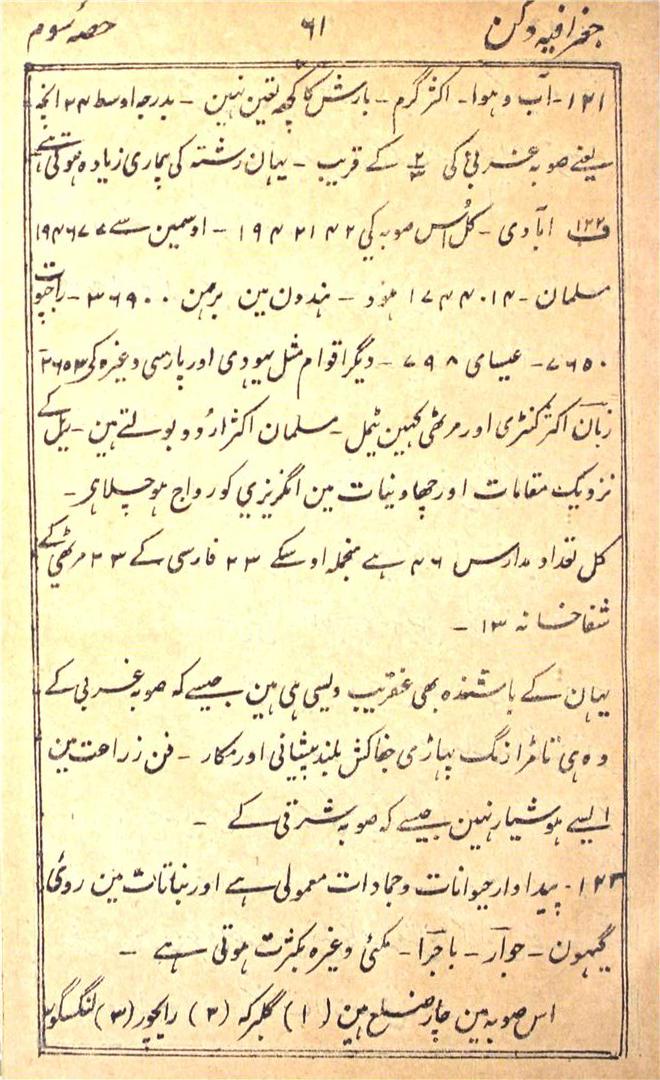 جغرافیہ دکن ۶۱ حصہ سوم
۱۲۱-آب و ہوا- اکثر گرم- بارش کا کچھ تعین نہین - بدرجہ اوسط ۲۴ انچہ
یعنے صوبہ غربی کی ۲/۳ کے قریب - یہان رشتہ کی بیماری زیادہ ہوتی ہے
۱۲۲ آبادی- کل اس صوبہ کی ۱۹۴۲۱۴۲ - اوسمین سے ۱۹۴۶۷۷
مسلمان - ۱۷۴۴۰۱۴ ہنود - ہندون مین برہمن ۳۶۹۰۰ - راجپوت
۷۶۵۰- عیسای ۷۹۸ - دیگر اقوام مثل یہودی اور پارسی وغیرہ کی ۲۶۵۳
زبان اکثر کنٹری اور مرہٹی کہین ٹیمل- مسلمان اکثر اردو بولتے ہین - ریل کے
نزدیک مقامات اور چھاونیات مین انگریزی کو رواج ہو چلا ہے-
کل تعداد مدارس ۴۶ ہے منجملہ اوسکے ۲۳ فارسی کے ۲۳ مرہٹی کے
شفاخانہ ۱۳ -
یہان کے باشندہ بھی عنقریب ویسی ہی ہین جیسے کہ صوبہ غربی کے
وہی تانڑا رنگ پہاڑی جفاکش بلند پیشانی اور مکار - فن زراعت مین
ایسے ہوشیار نہین جیسے کہ صوبہ شرقی کے -
۱۲۳- پیداوار حیوانات و جمادات معمولی ہے اور نباتات مین روئی
گیہون - جوار - باجرا - مکئی وغیرہ بکثرت ہوتی ہے -
اس صوبہ مین چار ضلع ہین (۱) گلبرکہ (۲) رایچور (۳) لنگسگور